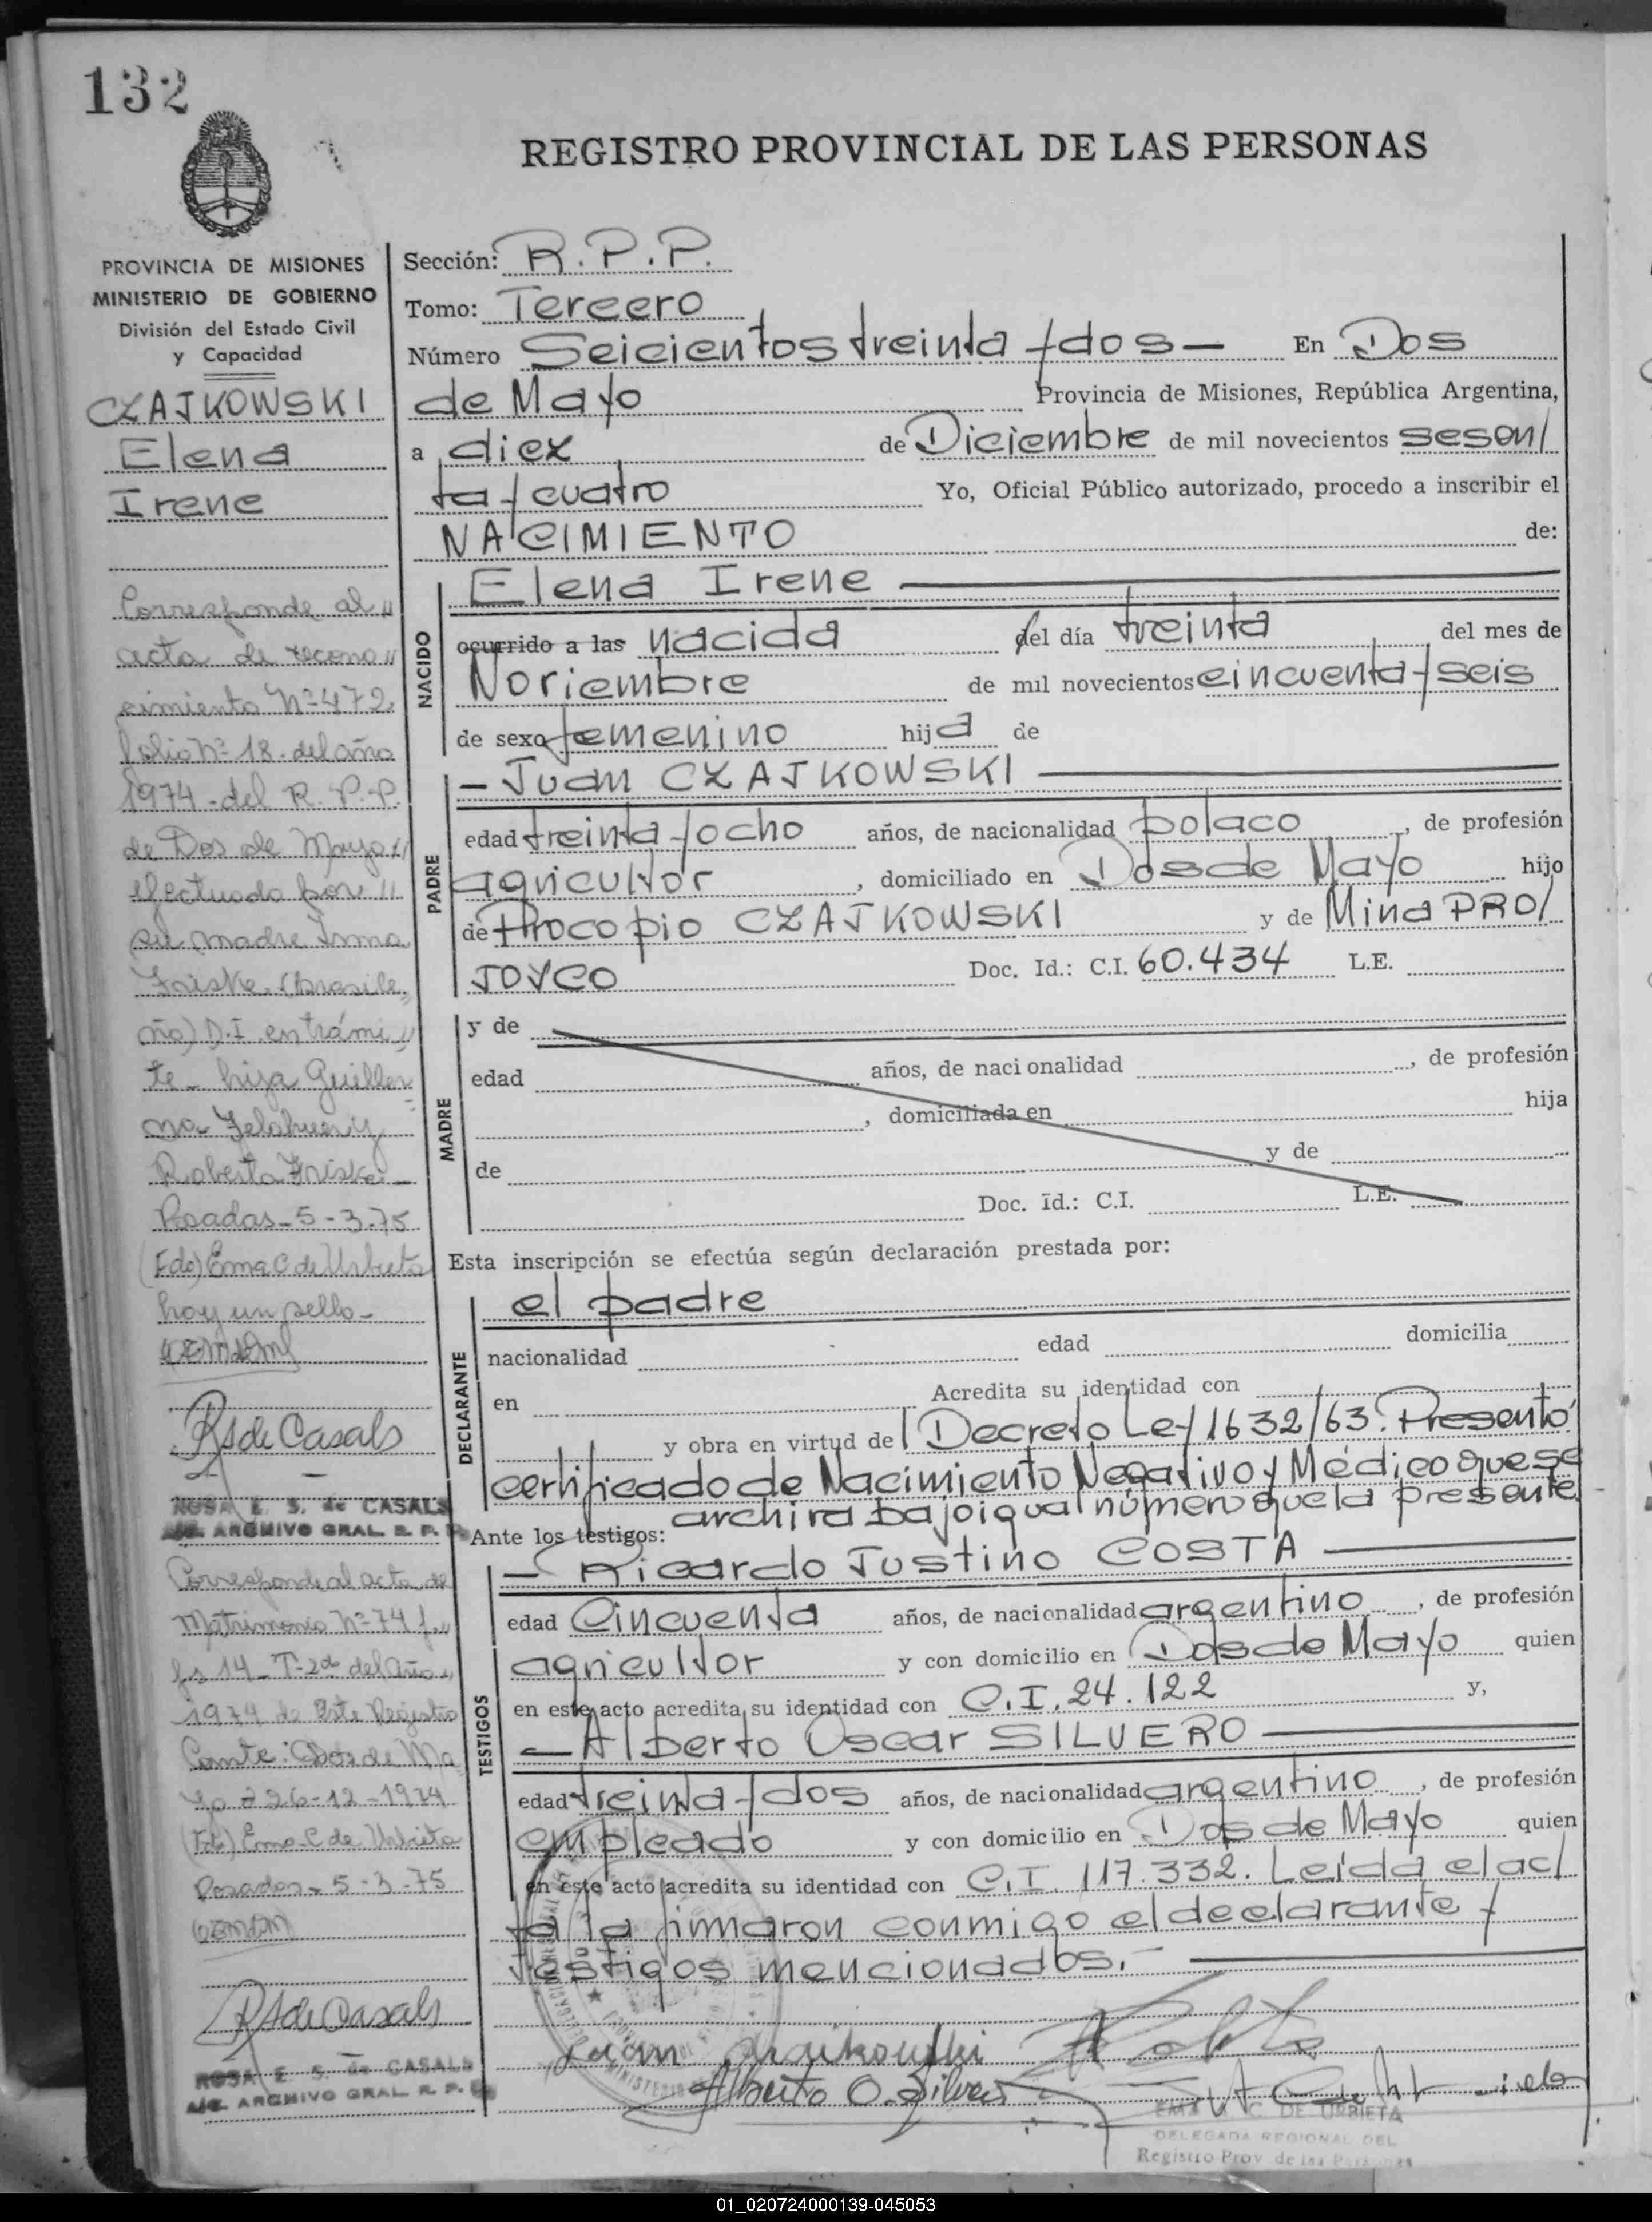 132
REGISTRO PROVINCIAL DE LAS PERSONAS
PROVINCIA DE MISIONES
MINISTERIO DE GOBIERNO
División del Estado Civil
y Capacidad
CZAJKOWSKI
Elena
Irene
Corresponde al "
acta de recono "
cimiento Nº 472,
folio Nº 18. del año
1974 - del R. P. P.
de Dos de Mayo "
efectuado por "
su madre Irma
Friske (brasile
ña) D.I. en trámi "
te - hija Guiller
ma y
Roberto Friske -
Posadas - 5 - 3. 75
(Fdo) Ema C de Urbieta
hay un sello -
RS de Casals
ROSA E. S. de CASALS
ARCHIVO GRAL. R. P. P.
Corresponde al acta de
Matrimonio Nº 74 f "
fs 14 - T- 2do del año "
1974 de Este Registro
Conste: Dos de Ma
yo a 26 - 12 - 1974
(Fdo) Ema C de Urbieta
Posadas - 5 - 3 - 75
RS de Casals
ROSA E. S. de CASALS
ARCHIVO GRAL. R. P. P.
Sección: R. P. P.
Tomo: Tercero
Número Seicientos treinta y dos — En Dos
de Mayo Provincia de Misiones, República Argentina,
a diez de Diciembre de mil novecientos sesen/
ta y cuatro Yo, Oficial Público autorizado, procedo a inscribir el
NACIMIENTO de:
NACIDO
Elena Irene
ocurrido a las nacida del día treinta del mes de
Noviembre de mil novecientos cincuenta y seis
de sexo femenino hija de
PADRE
— Juan CZAJKOWSKI
edad treinta y ocho años, de nacionalidad polaco, de profesión
agricultor, domiciliado en Dos de Mayo hijo
de Procopio CZAJKOWSKI y de Mina PRO/
JOYCO Doc. Id.: C.I. 60.434 L.E.
MADRE
y de
edad años, de nacionalidad , de profesión
, domiciliada en hija
de y de
Doc. Id.: C.I. L.E.
Esta inscripción se efectúa según declaración prestada por:
DECLARANTE
el padre
nacionalidad edad domicilia
en Acredita su identidad con
y obra en virtud del Decreto Ley 1632/63. Presentó
certificado de Nacimiento Negativo y Médico que se
archiva bajo igual número que la presente
Ante los testigos:
TESTIGOS
— Ricardo Justino COSTA
edad Cincuenta años, de nacionalidad argentino, de profesión
agricultor y con domicilio en Dos de Mayo quien
en este acto acredita su identidad con C.I. 24.122 y,
— Alberto Oscar SILVERO
edad treinta y dos años, de nacionalidad argentino, de profesión
empleado y con domicilio en Dos de Mayo quien
en este acto acredita su identidad con C.I. 117.332. Leída el ac/
ta la firmaron conmigo el declarante y
testigos mencionados.
Juan Czajkowski
Alberto O. Silvero
EMA C. DE URBIETA
DELEGADA REGIONAL DEL
Registro Prov. de las Personas
01_020724000139-045053